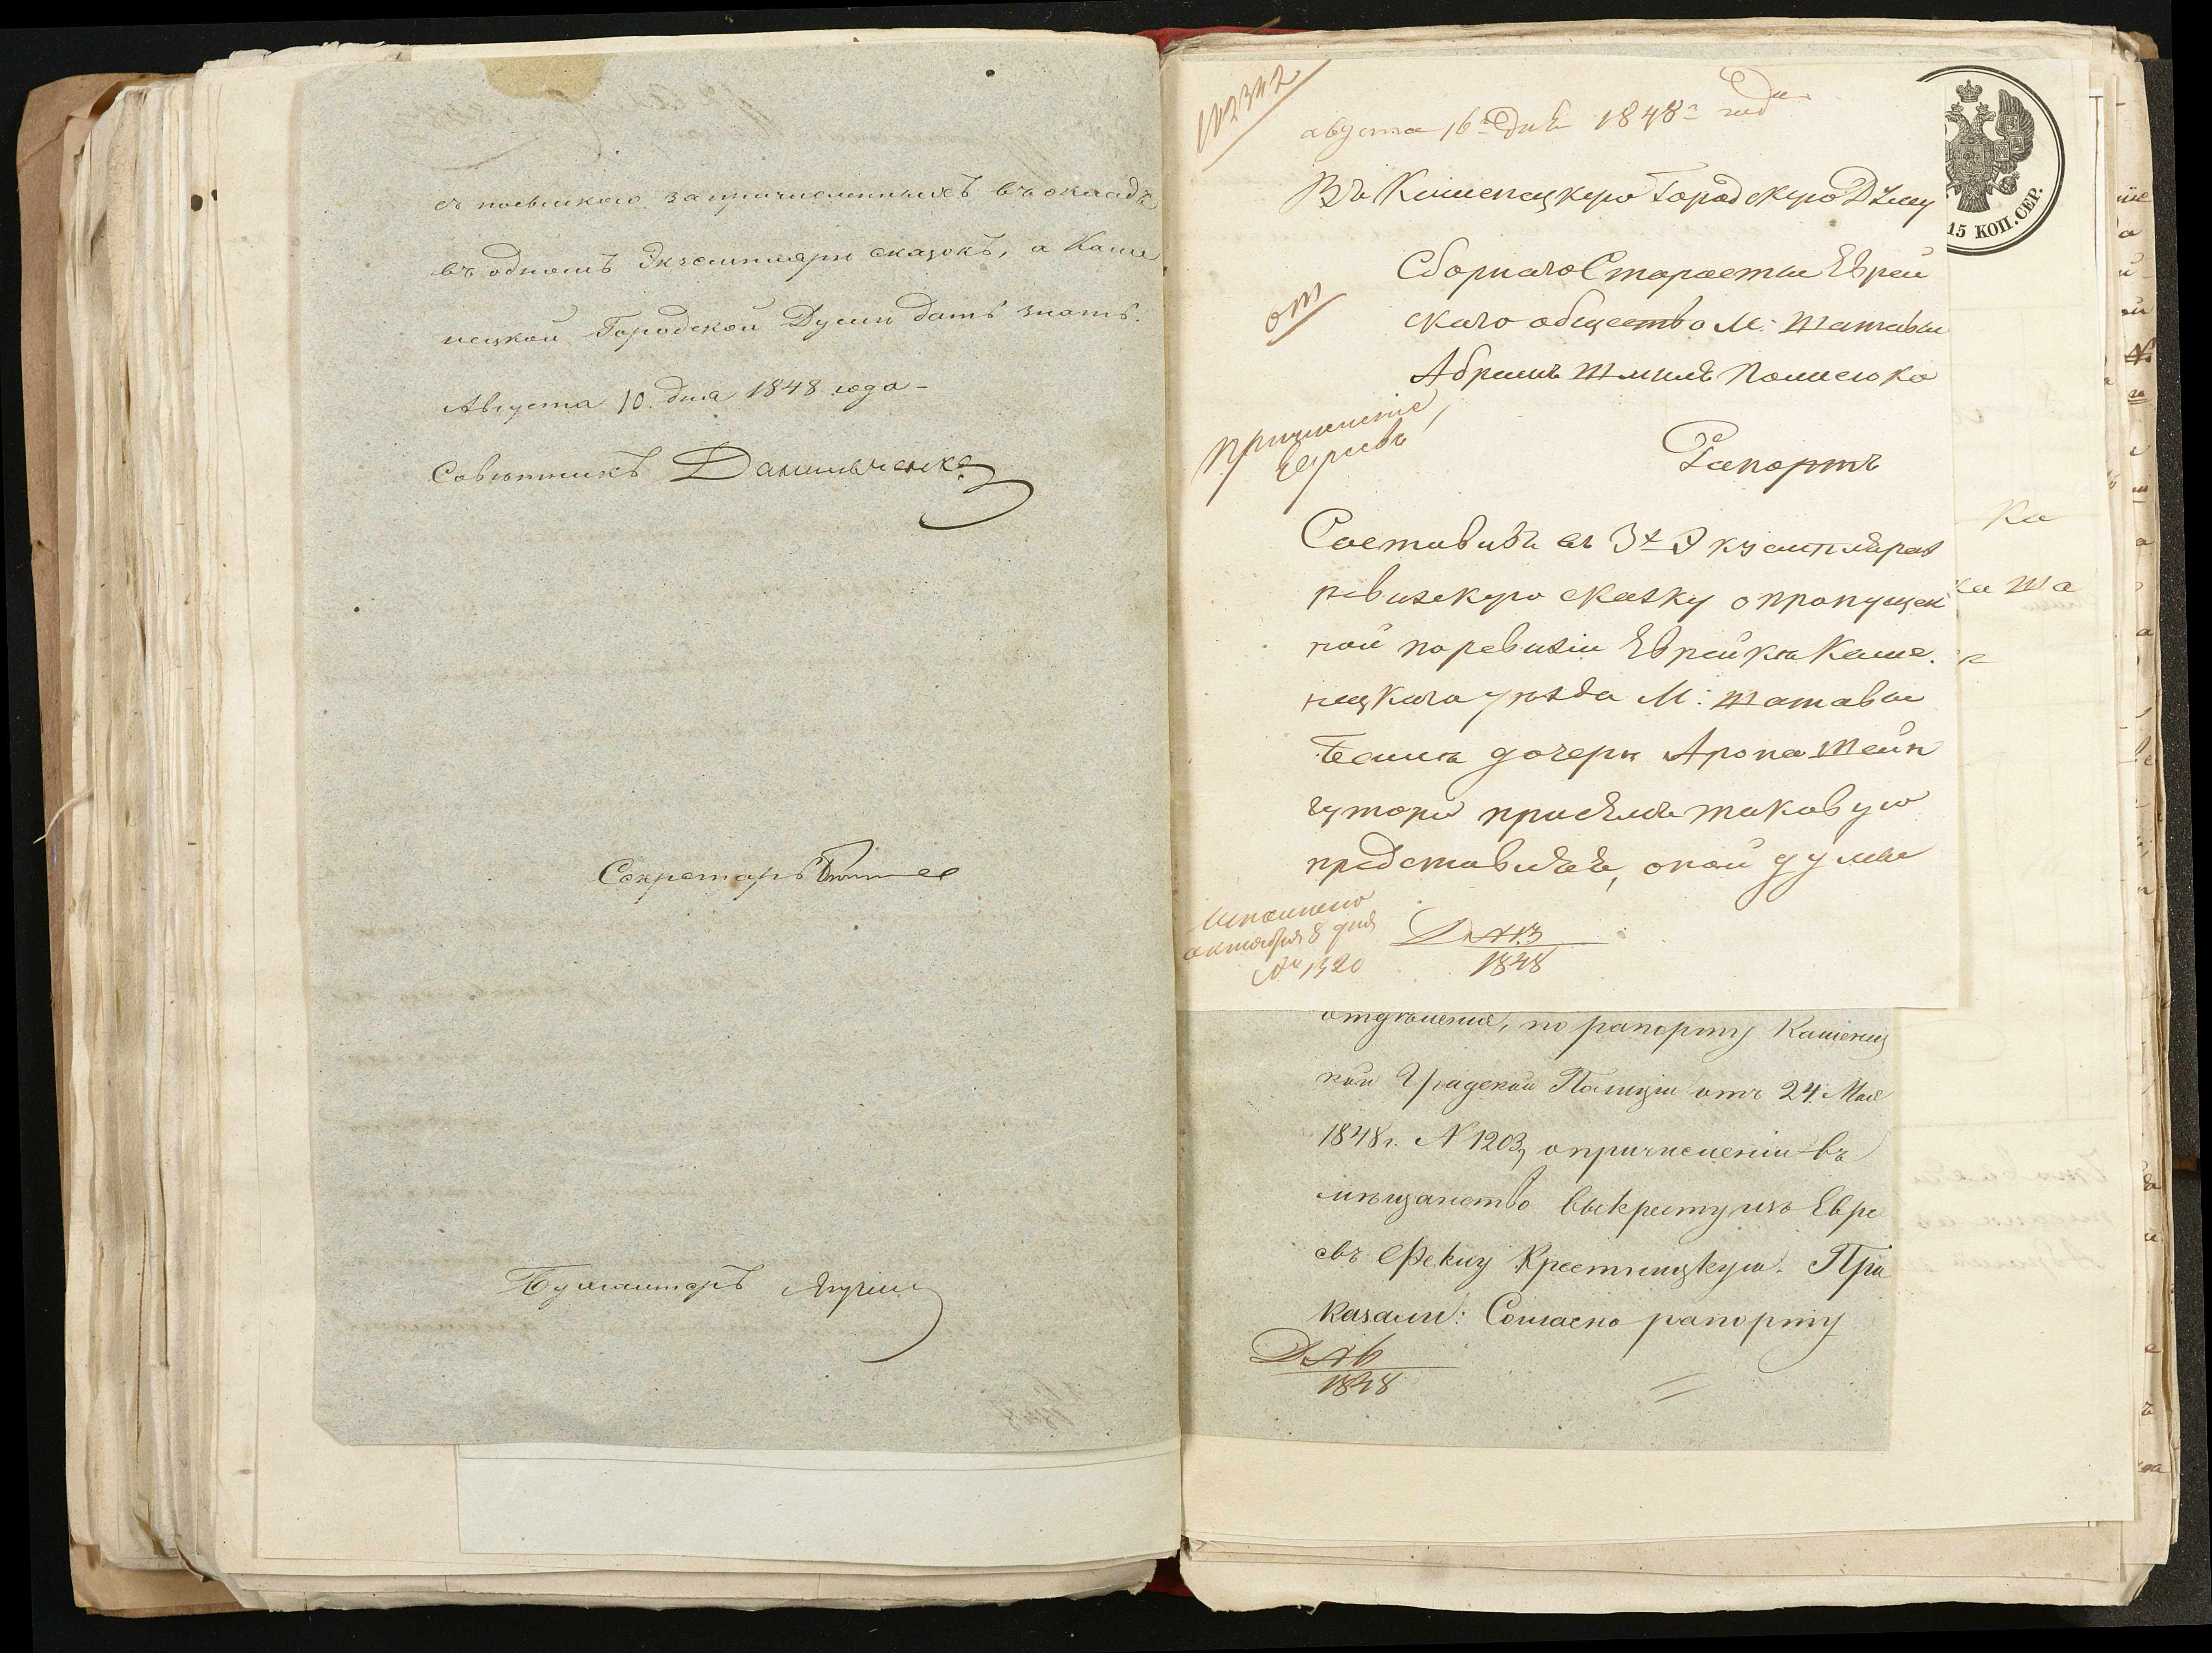 съ коевыхъ запричисленныхъ въ окладъ
въ одномъ Экземпляри сказокъ, а Каме
нецкой Городской Думи дать знать.
Августа 10. дня 1848 года -
Совѣтникъ Данильченко
Секретарь
Бухгалтеръ
№2342
августа 16го дня 1848го года
15 КОП. СЕР.
Въ Каменецкую Городскую Думу
от
Сборнаго Старосты Еврей
скаго общество М: Шатавы
Абрамъ Шмиль
Причисленіе
Евреевъ
Рапортъ
Составивъ въ 3х Экземплярах
ревизскую сказку о пропущен
ной по ревизіи Еврейки Каме.
нецкаго уѣзда М: Шатавы
дочери Арона Шейн
таковую
представить, оной думы
Исполнено
октября 8 дня
№ 1320
Д №13
1848
отдѣленія, по рапорту Каменец
кой Градской Полиціи отъ 24. Мая
1848 г. N 1203, о причисленіи въ
мѣщанство выкресту изъ Евре
евъ Феклу Крестницкую. При
казали: Согласно рапорту
Д №6
1848